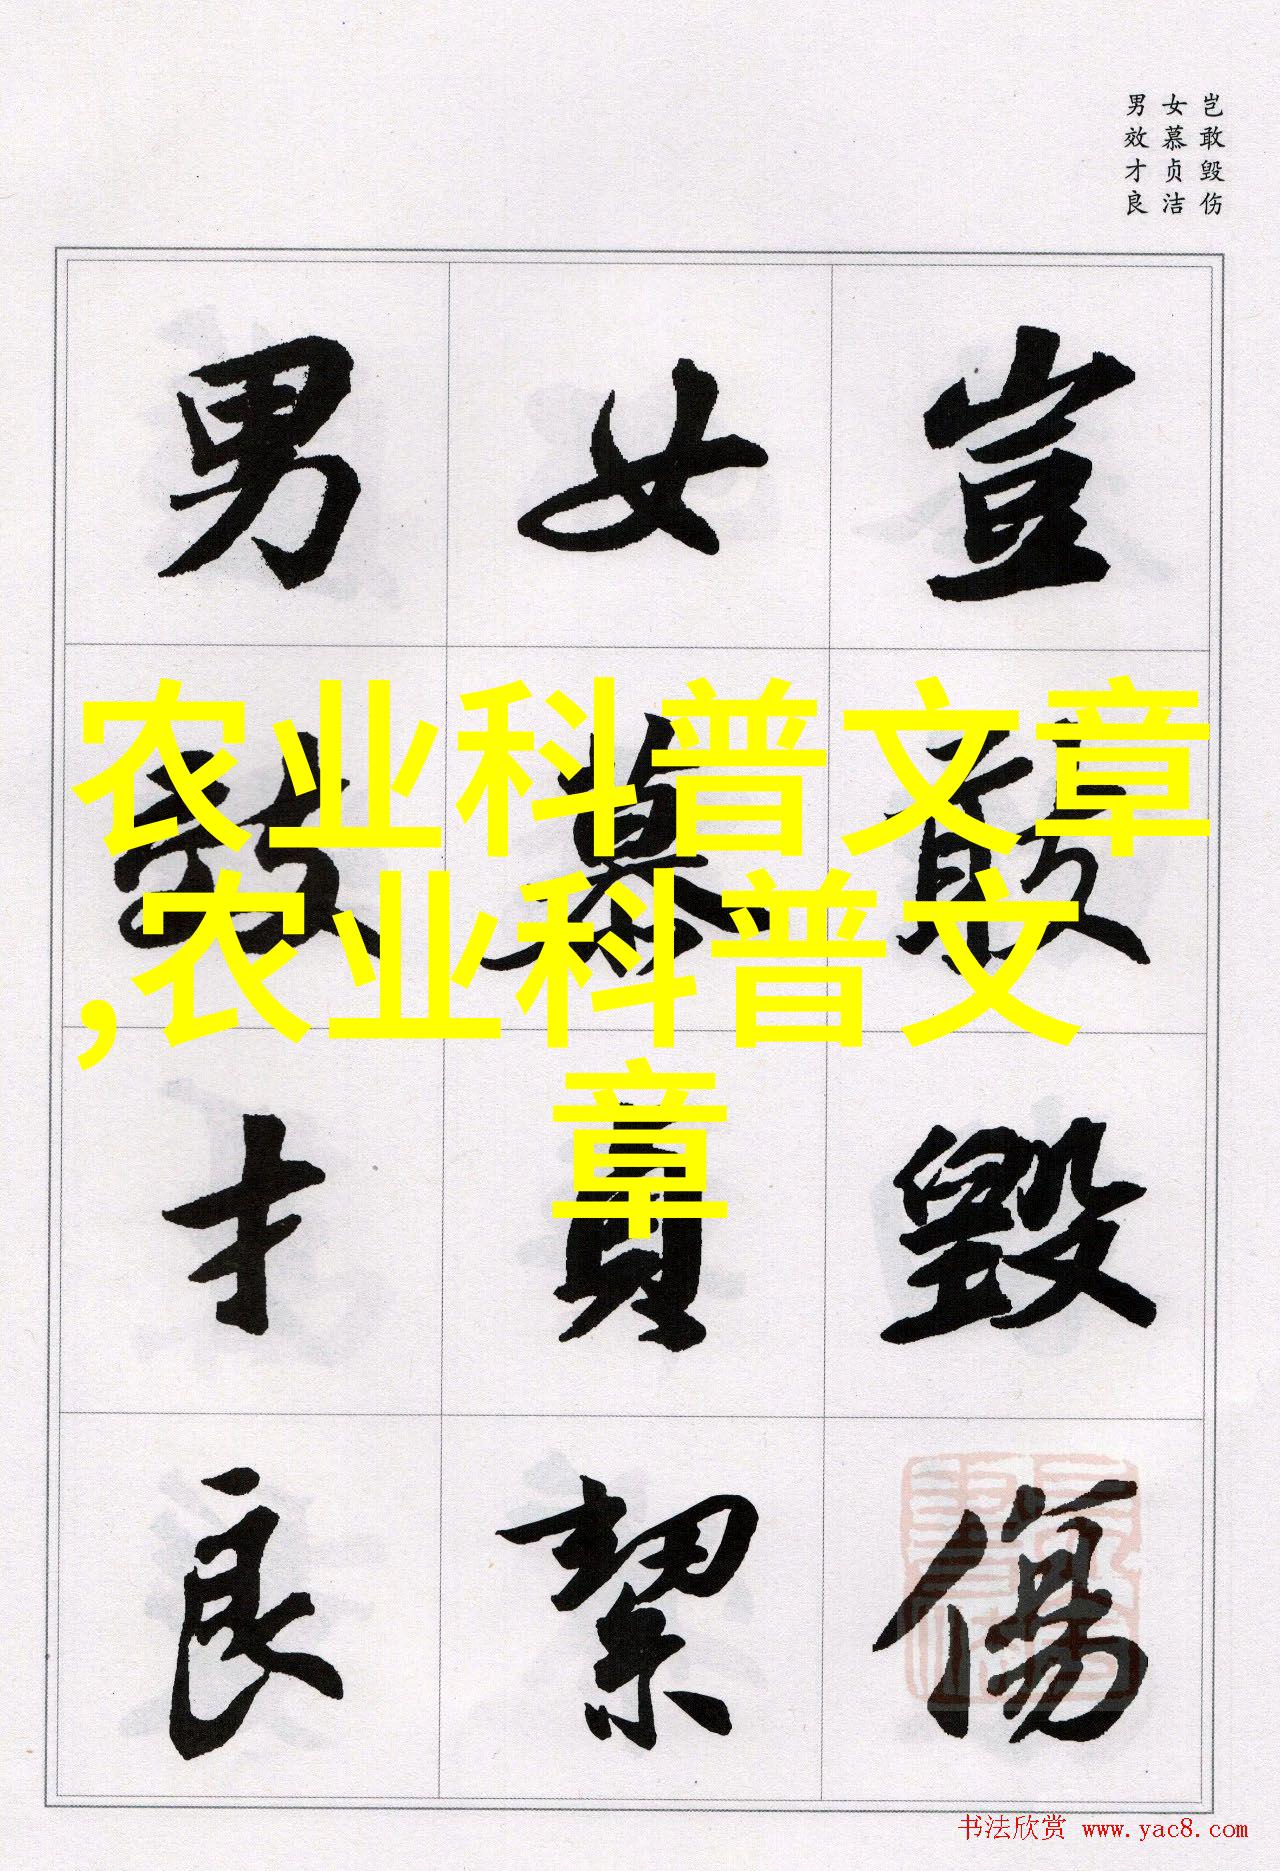 岂敢毁伤
女慕贞洁
男效才良
豈敢毀傷
女慕貞絜
男效才良
农业科普文章
,农业科普文
章
书法欣赏 www.yac8.com